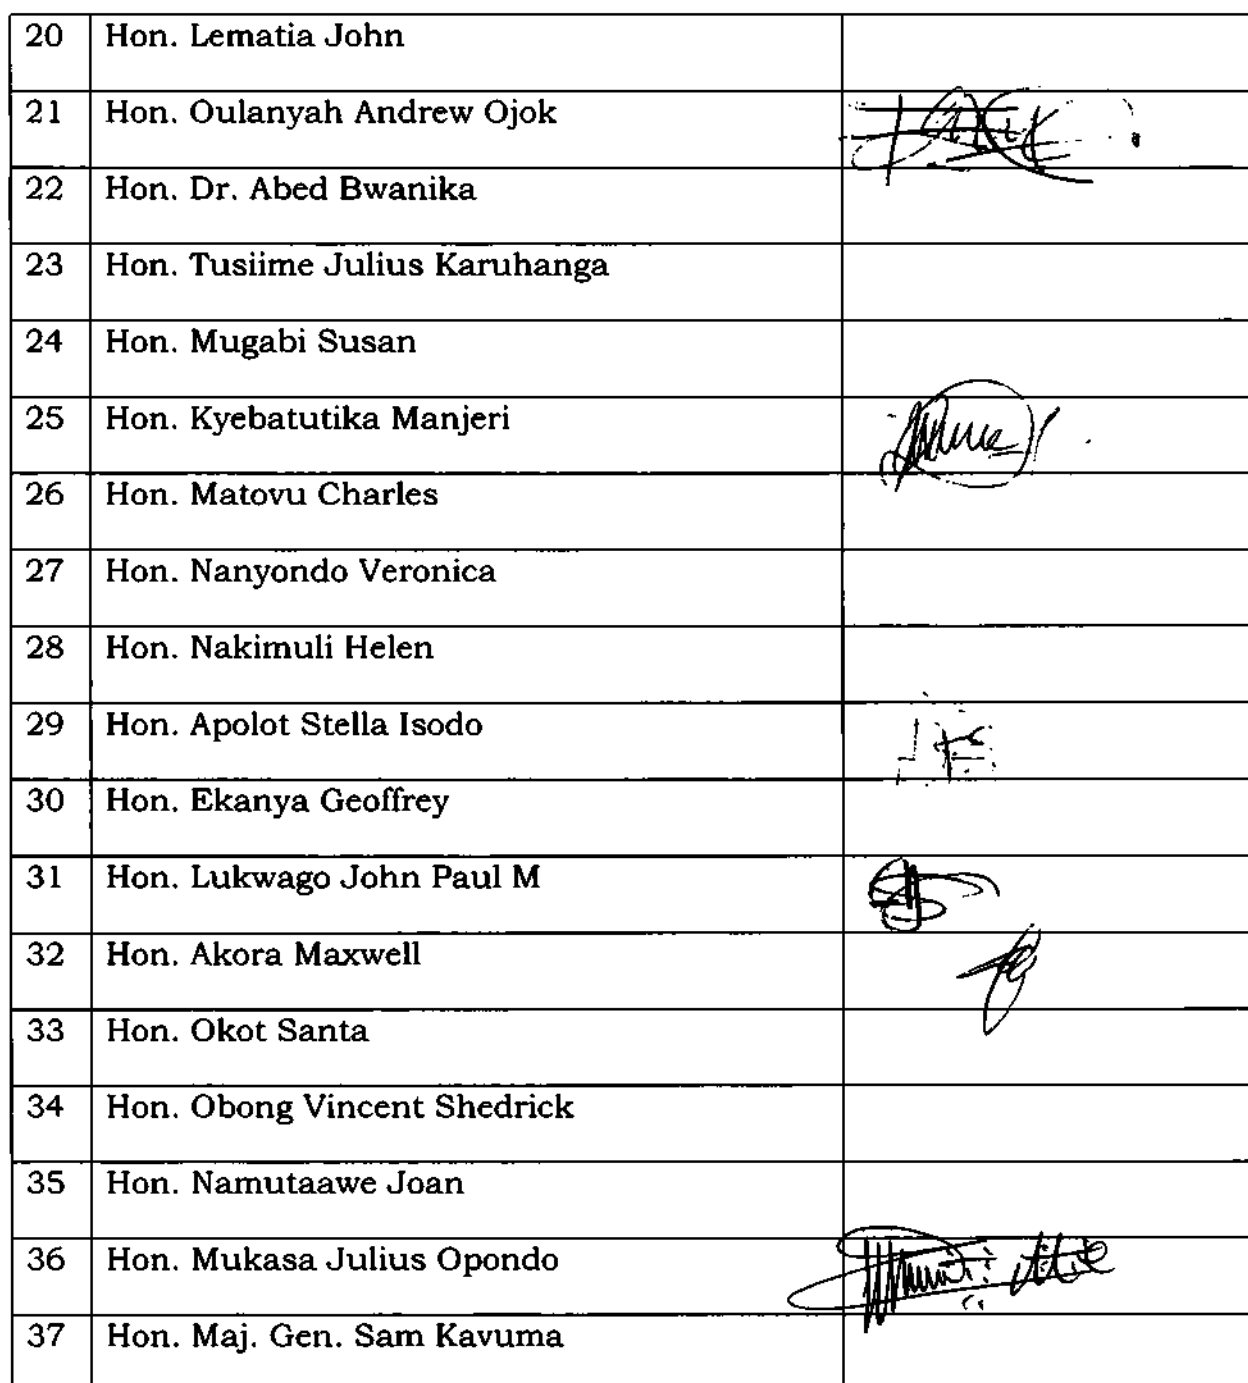 20 Hon. Lematia John
21 Hon. Oulanyah Andrew Ojok
22 Hon. Dr. Abed Bwanika
23 Hon. Tusiime Julius Karuhanga
24 Hon. Mugabi Susan
25 Hon. Kyebatutika Manjeri
26 Hon. Matovu Charles
27 Hon. Nanyondo Veronica
28 Hon. Nakimuli Helen
29 Hon. Apolot Stella Isodo
30 Hon. Ekanya Geoffrey
31 Hon. Lukwago John Paul M
32 Hon. Akora Maxwell
33 Hon. Okot Santa
34 Hon. Obong Vincent Shedrick
35 Hon. Namutaawe Joan
36 Hon. Mukasa Julius Opondo
37 Hon. Maj. Gen. Sam Kavuma